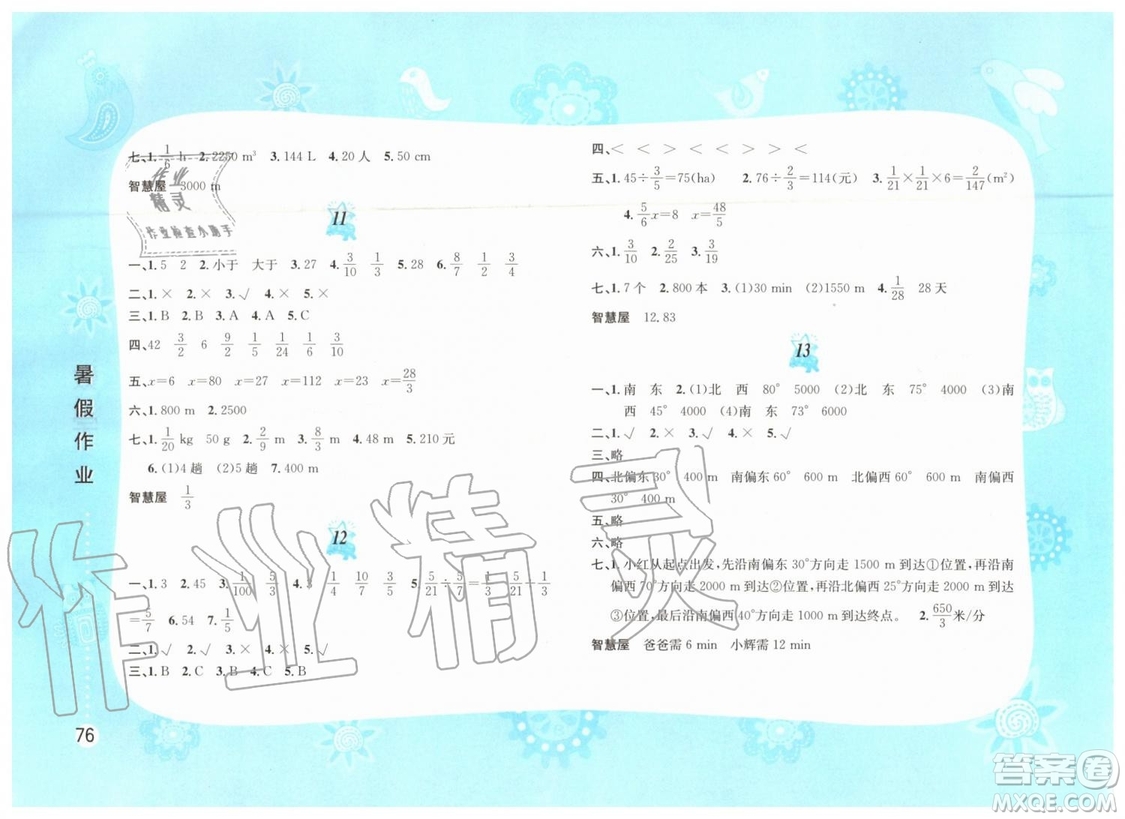 七、1. 1/6 h 2. 2250 m³ 3. 144 L 4. 20 人 5. 50 cm
智慧屋 3000 m
作业
精灵
作业检查小助手
11
一、1. 5 2 2. 小于 大于 3. 27 4. 3/10 1/3 5. 28 6. 8/7 1/2 3/5
二、1. × 2. × 3. √ 4. × 5. ×
三、1. B 2. B 3. A 4. A 5. C
四、42 3/2 6 9/2 1/5 1/2 1/3 3/10
五、x=6 x=80 x=9/2 x=24 x=28/3
六、1. 800 m 2. 2500
七、1. 1/20 kg 50 g 2. 2/9 m 3. 8/3 m 4. 48 m 5. 210 元
6. (1)4 趟 (2)5 趟 7. 400 m
智慧屋 1/3
12
一、1. 3 2. 45 3. 1/100 3/5 4. 3 1/4 10/7 3/5 5. 5/21 5/21÷1/3
=5/7 6. 54 7. 1/5
二、1. √ 2. √ 3. × 4. ×
三、1. B 2. C 3. B 4. C 5. B
四、< < < > > > <
五、1. 45÷3/5=75(ha) 2. 76÷2/3=114(元) 3. 1/21×1/21×6=2/147(m²)
4. 5/6 x=8 x=48/5
六、1. 3/10 2. 2/25 3. 3/19
七、1. 7 个 2. 800 本 3. (1)30 min (2)1550 m 4. 1/28 28 天
智慧屋 12.83
13
一、1. 南 东 2. (1)北 西 80° 5000 (2)北 东 75° 4000 (3)南
西 45° 4000 (4)南 东 73° 6000
二、1. √ 2. × 3. × 4. √ 5. √
三、略
四、北偏东30° 400 m 南偏东 60° 400 m 北偏西 60° 400 m 南偏西
30° 400 m
五、略
六、略
七、1. 小红从起点出发，先沿南偏东 30°方向走 1500 m 到达①位置，再沿南
偏西 70°方向走 2000 m 到达②位置，再沿北偏西 25°方向走 2000 m 到达
③位置，最后沿南偏西40°方向走 1000 m 到达终点。 2. 650/3 米/分
智慧屋 爸爸需 6 min 小辉需 12 min
暑假作业
76
作业精灵
答案圈
MXQE.COM